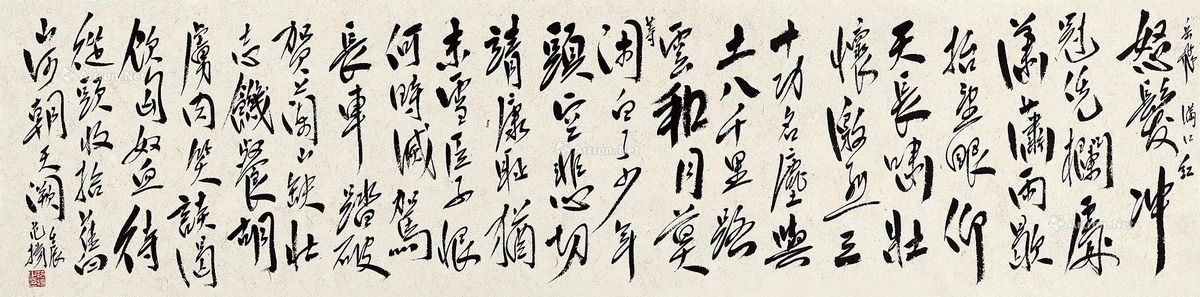 岳飛 滿江紅
怒髮冲
冠凭欄處
瀟瀟雨歇
抬望眼仰
天長嘯壯
懷激烈三
十功名塵與
土八千里路
雲和月莫
等
閑白了少年
頭空悲切
靖康恥猶
未雪臣子恨
何時滅駕
長車踏破
賀蘭山缺壯
志饑餐胡
虜肉笑談渴
飲匈奴血待
從頭收拾舊
山河朝天闕
壬辰
范揚
Artron.Net